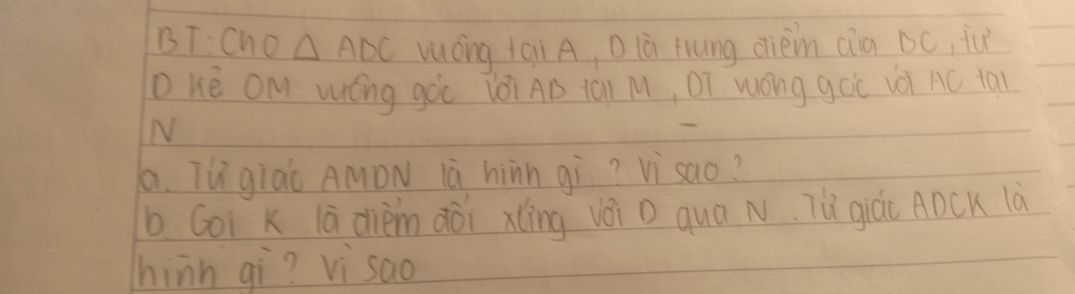 BT: Cho △ ABC vuông tại A, D là trung điểm của BC, từ
D kẻ DM vuông góc với AB tại M, DI vuông góc với AC tại
N
a. Tứ giác AMDN là hình gì? Vì sao?
b. Gọi K là điểm đối xứng với D qua N. Tứ giác ADCK là
hình gì? Vì sao